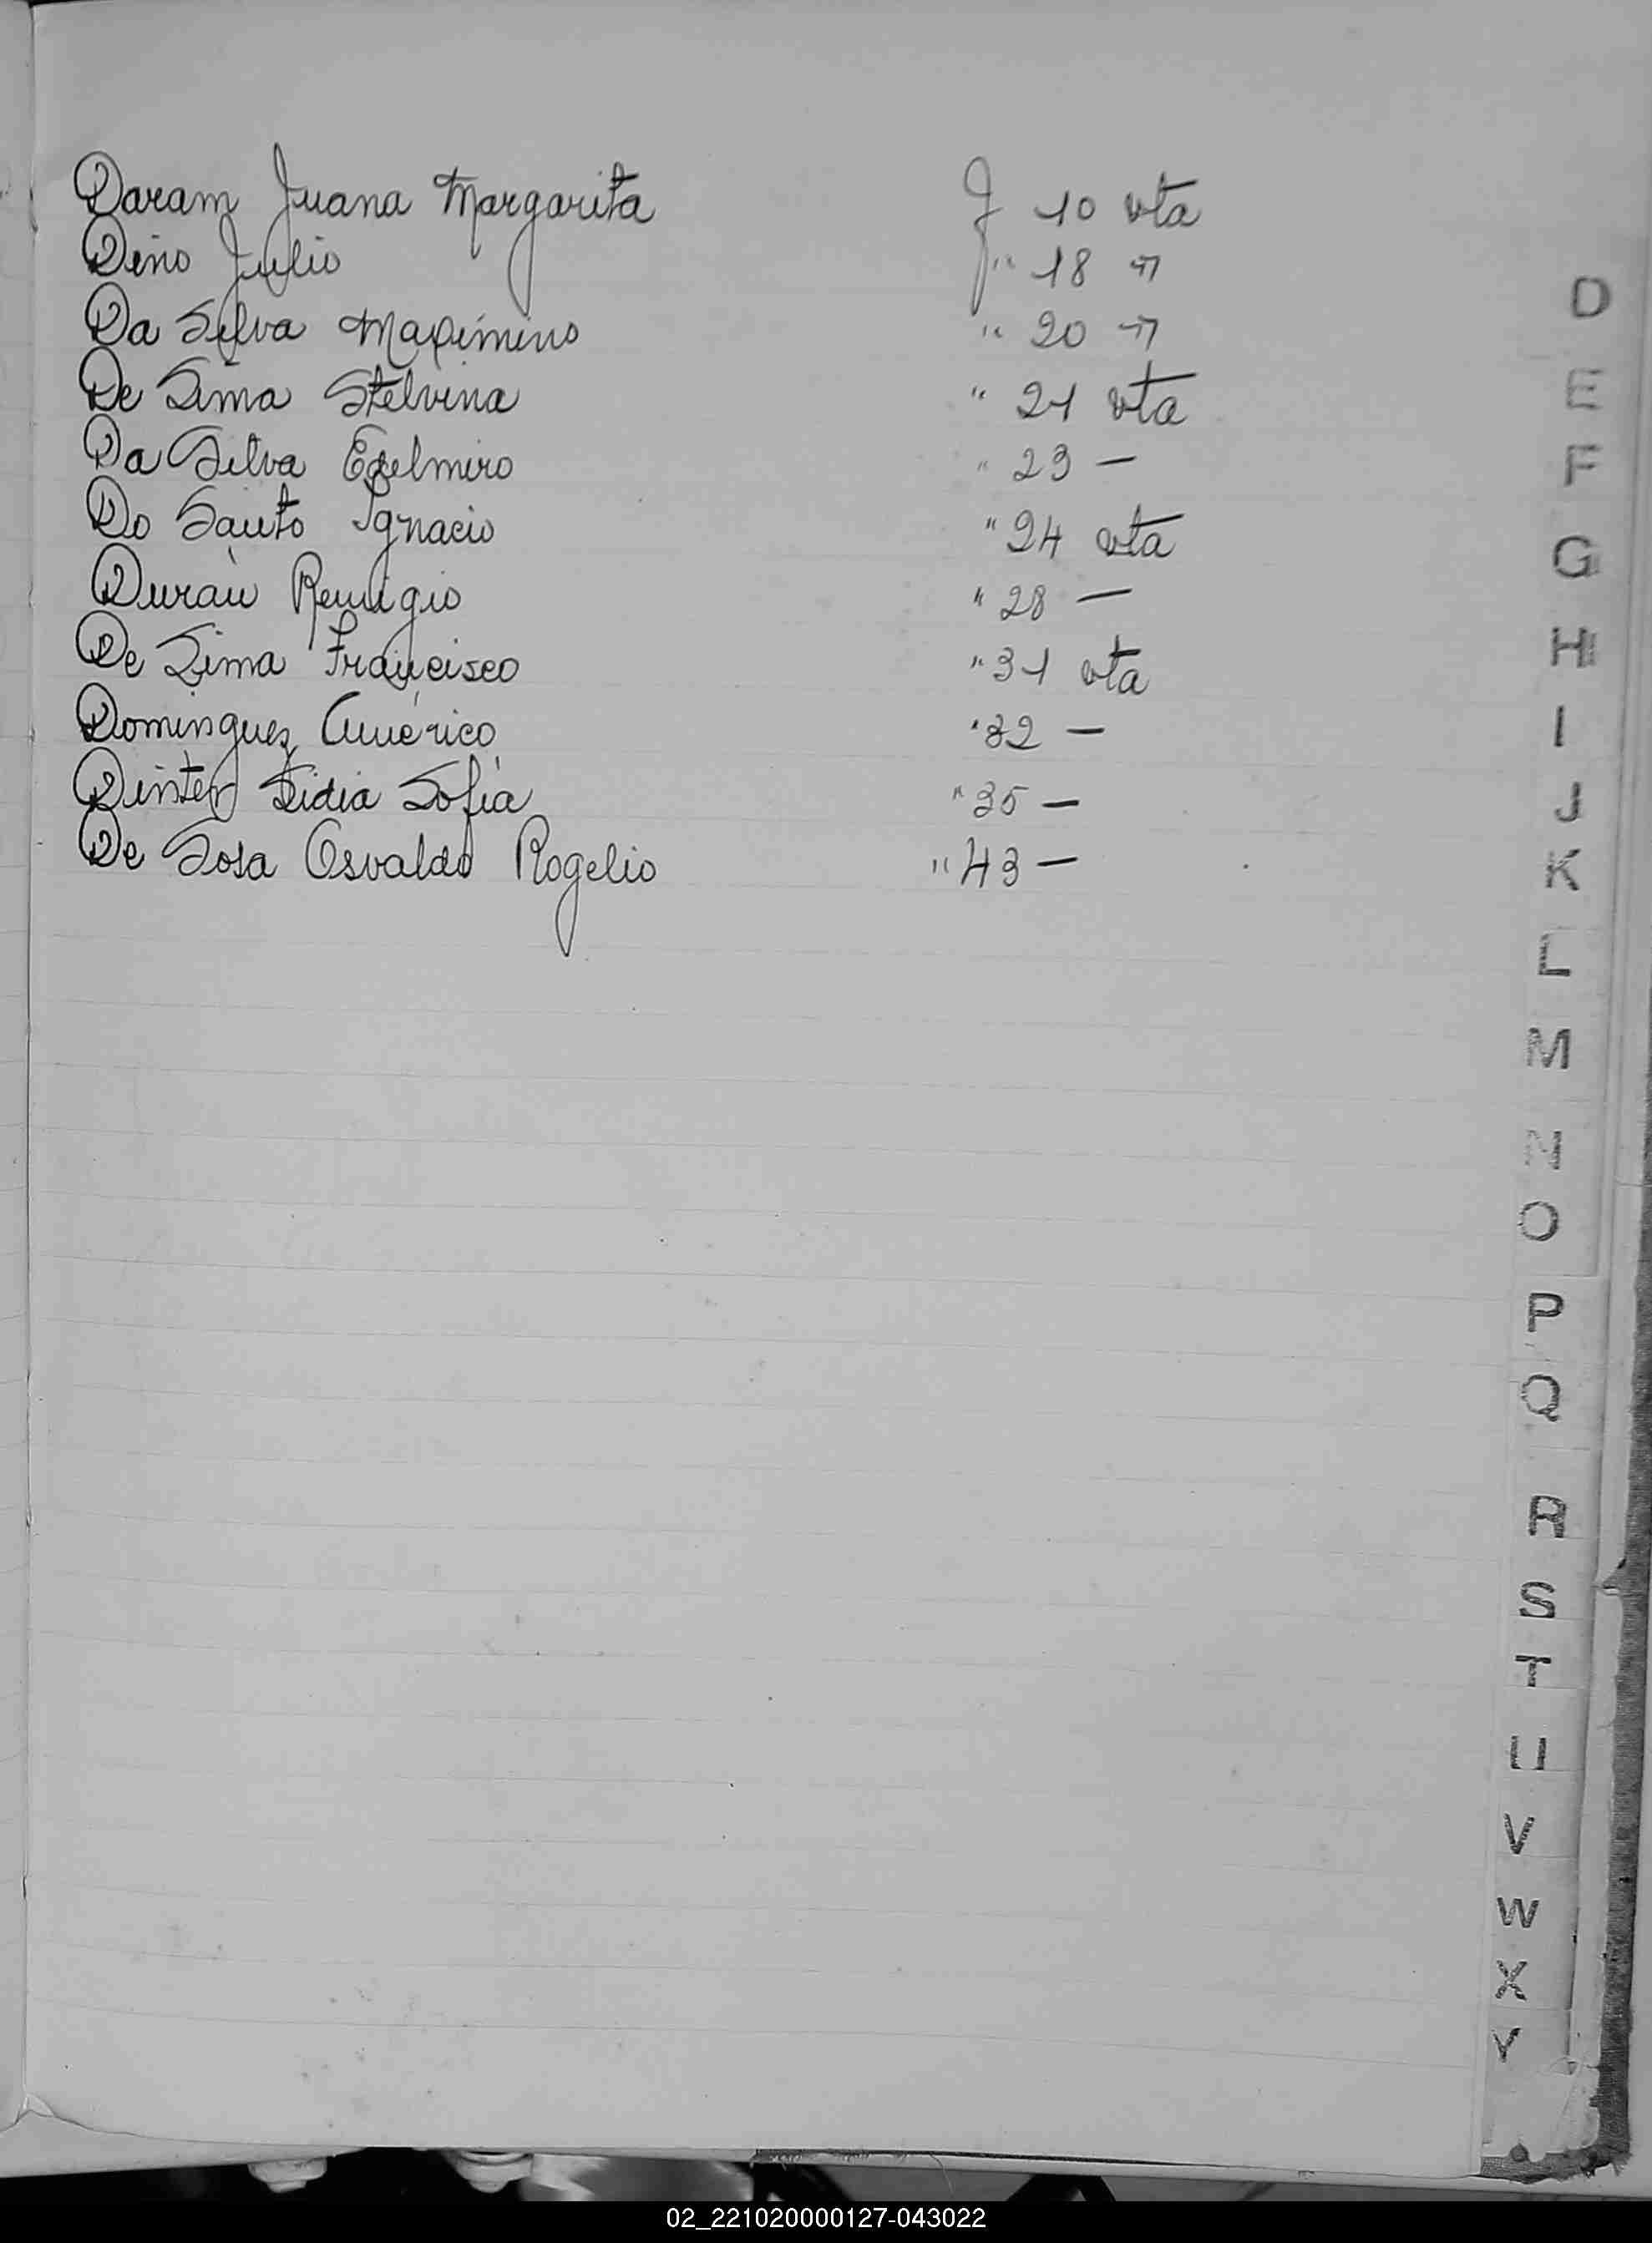 Daram Juana Margarita f 10 vta
Dino Julio " 18 "
Da Silva Maximino " 20 "
De Lima Stelvina " 21 vta
Da Silva Edelmiro " 23 —
Do Santo Ignacio " 24 vta
Durán Remigio " 28 —
De Lima Francisco " 31 vta
Dominguez Américo " 32 —
Dinter Lidia Sofia " 35 —
De Sosa Osvaldo Rogelio " 43 —
D
E
F
G
H
I
J
K
L
M
N
O
P
Q
R
S
T
U
V
W
X
Y
02_221020000127-043022